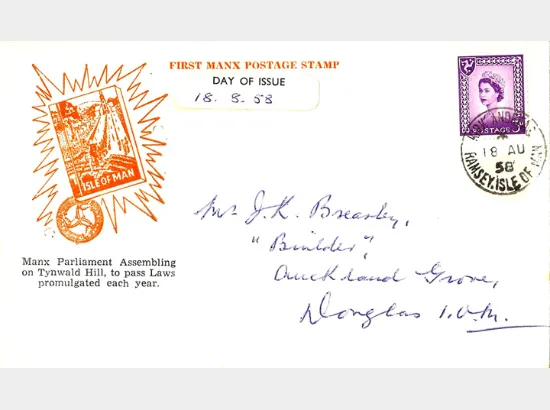 FIRST MANX POSTAGE STAMP
DAY OF ISSUE
18. 8. 58
POSTAGE
18 AU
58
RAMSEY. ISLE OF MAN
ISLE OF MAN
Mr J. K. Brearley,
"Builder",
Auckland Grove,
Douglas I.O.M.
Manx Parliament Assembling
on Tynwald Hill, to pass Laws
promulgated each year.